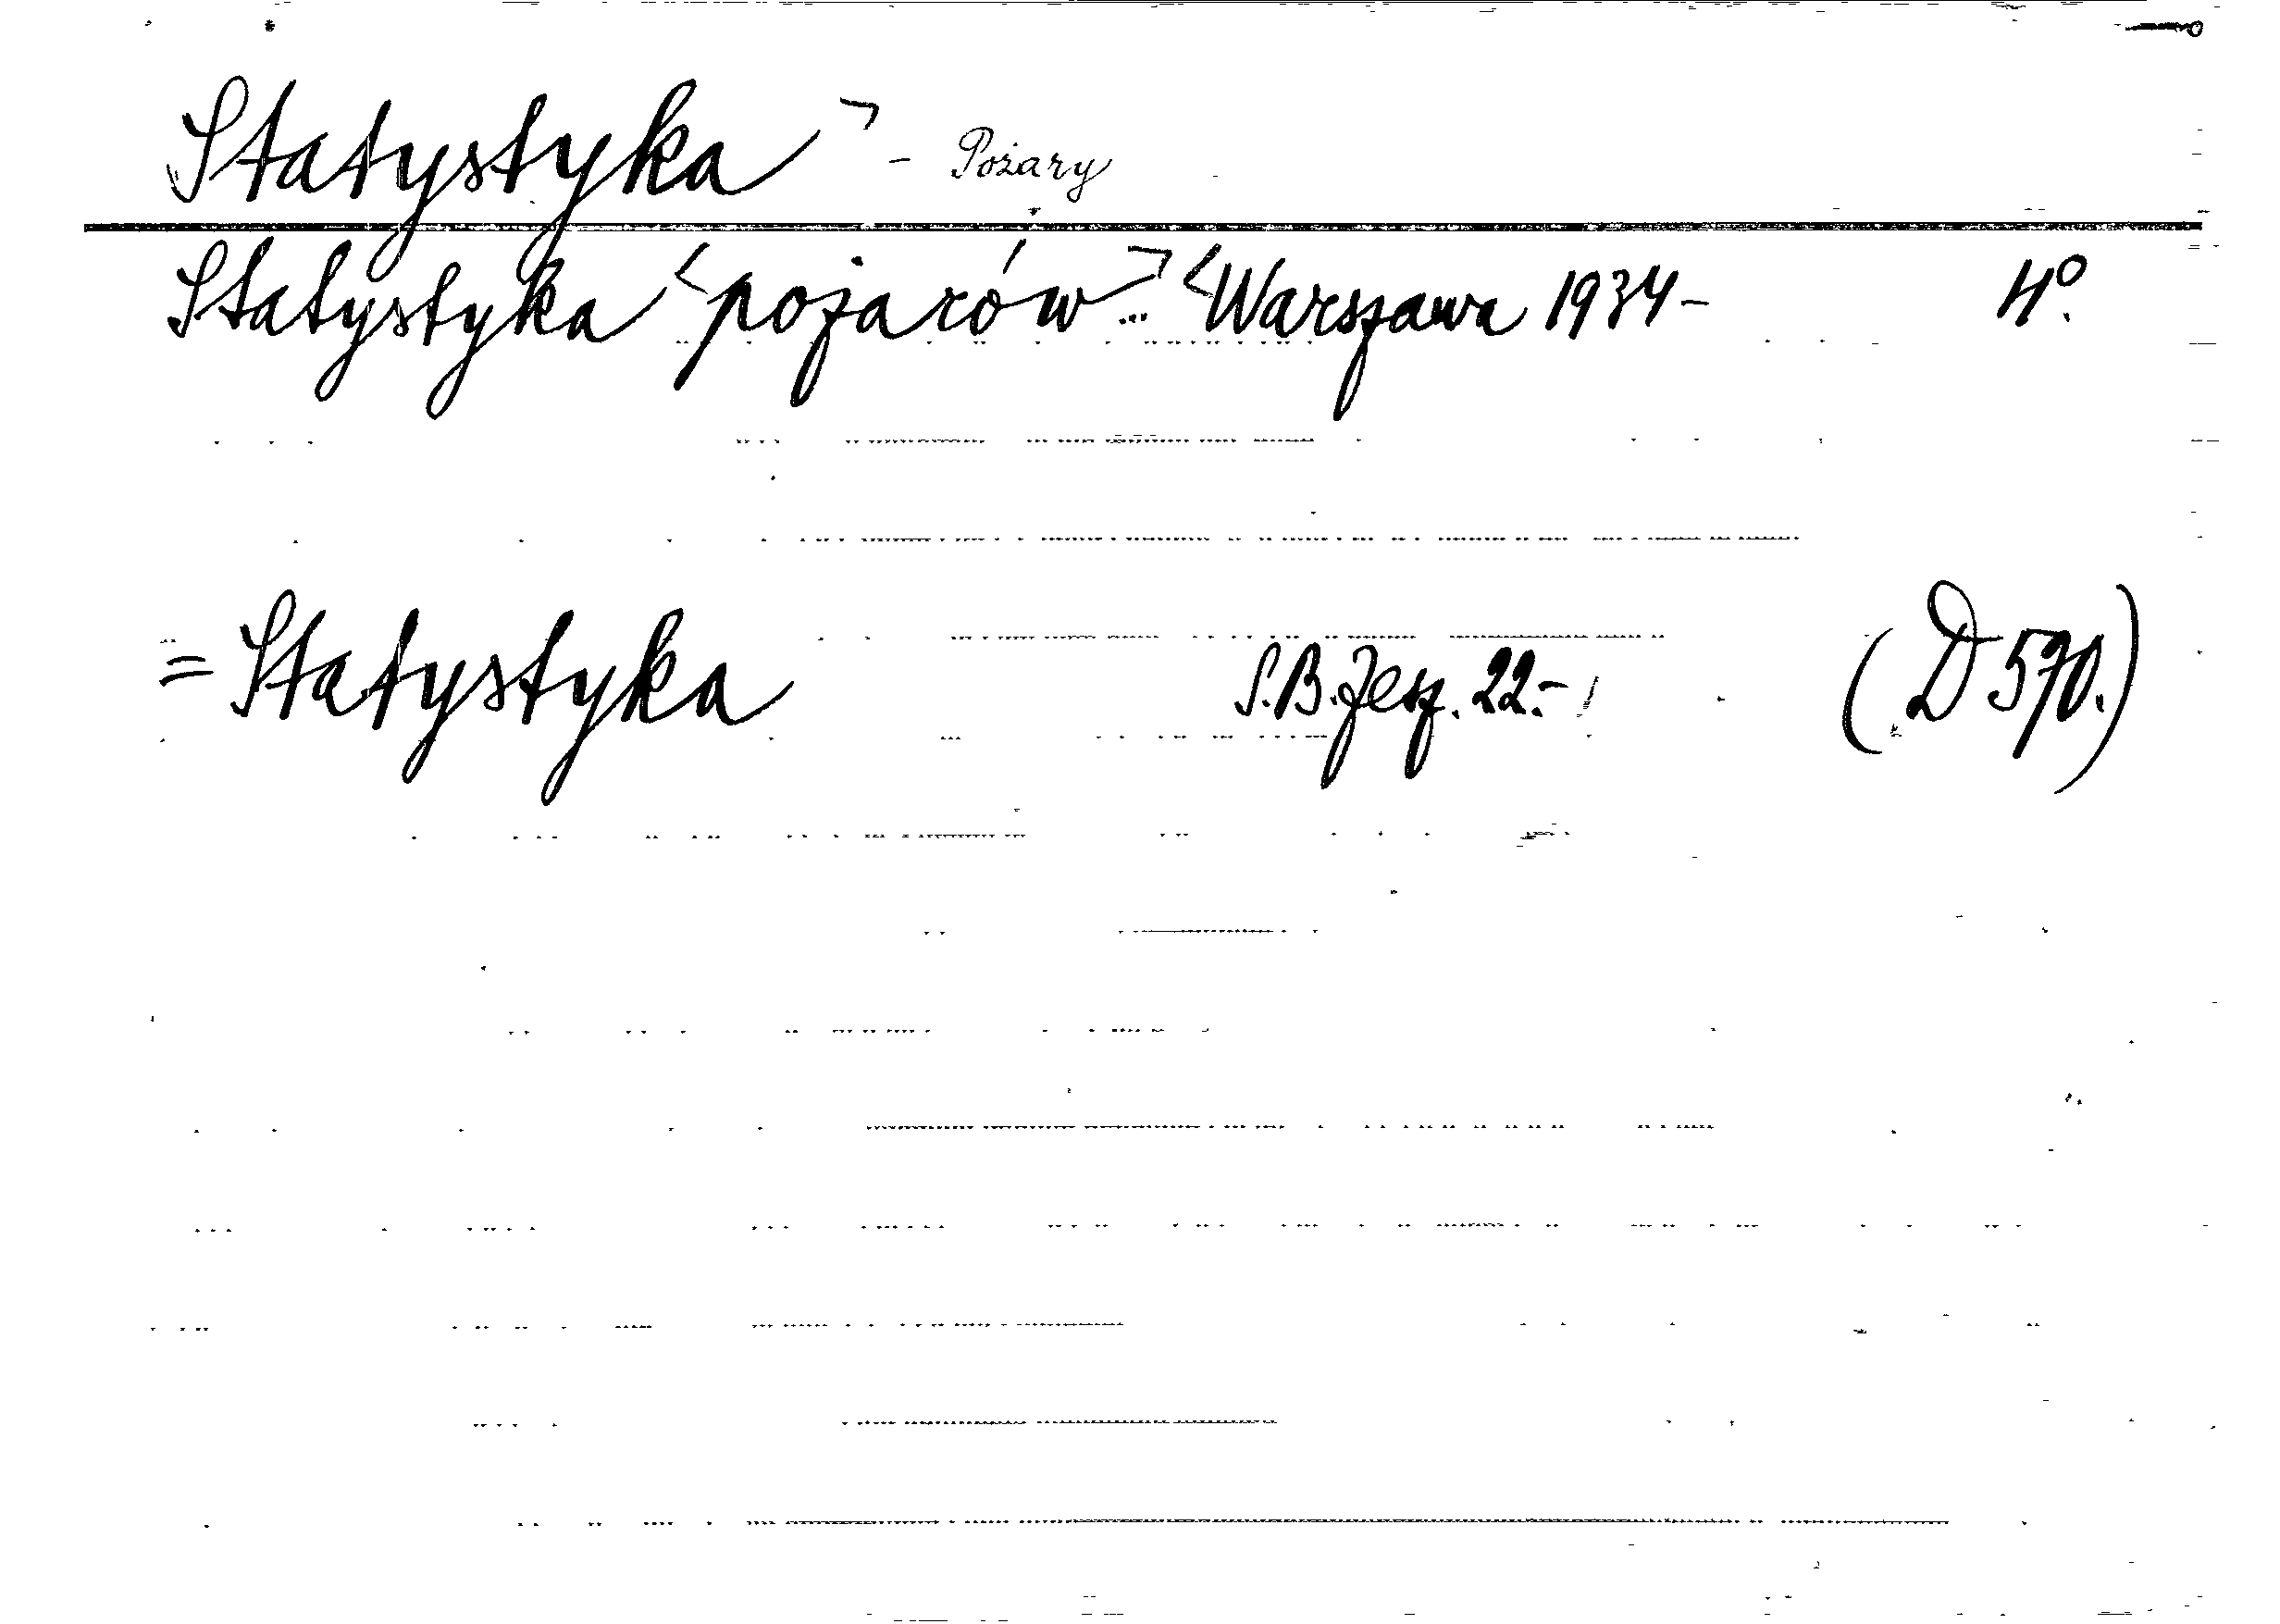 Statystyka ¬ - Pożary
Statystyka <pożarów...¬ <Warszawa 1934- 4º.
= Statystyka S.B.Zesz. 22.- (D 570.)